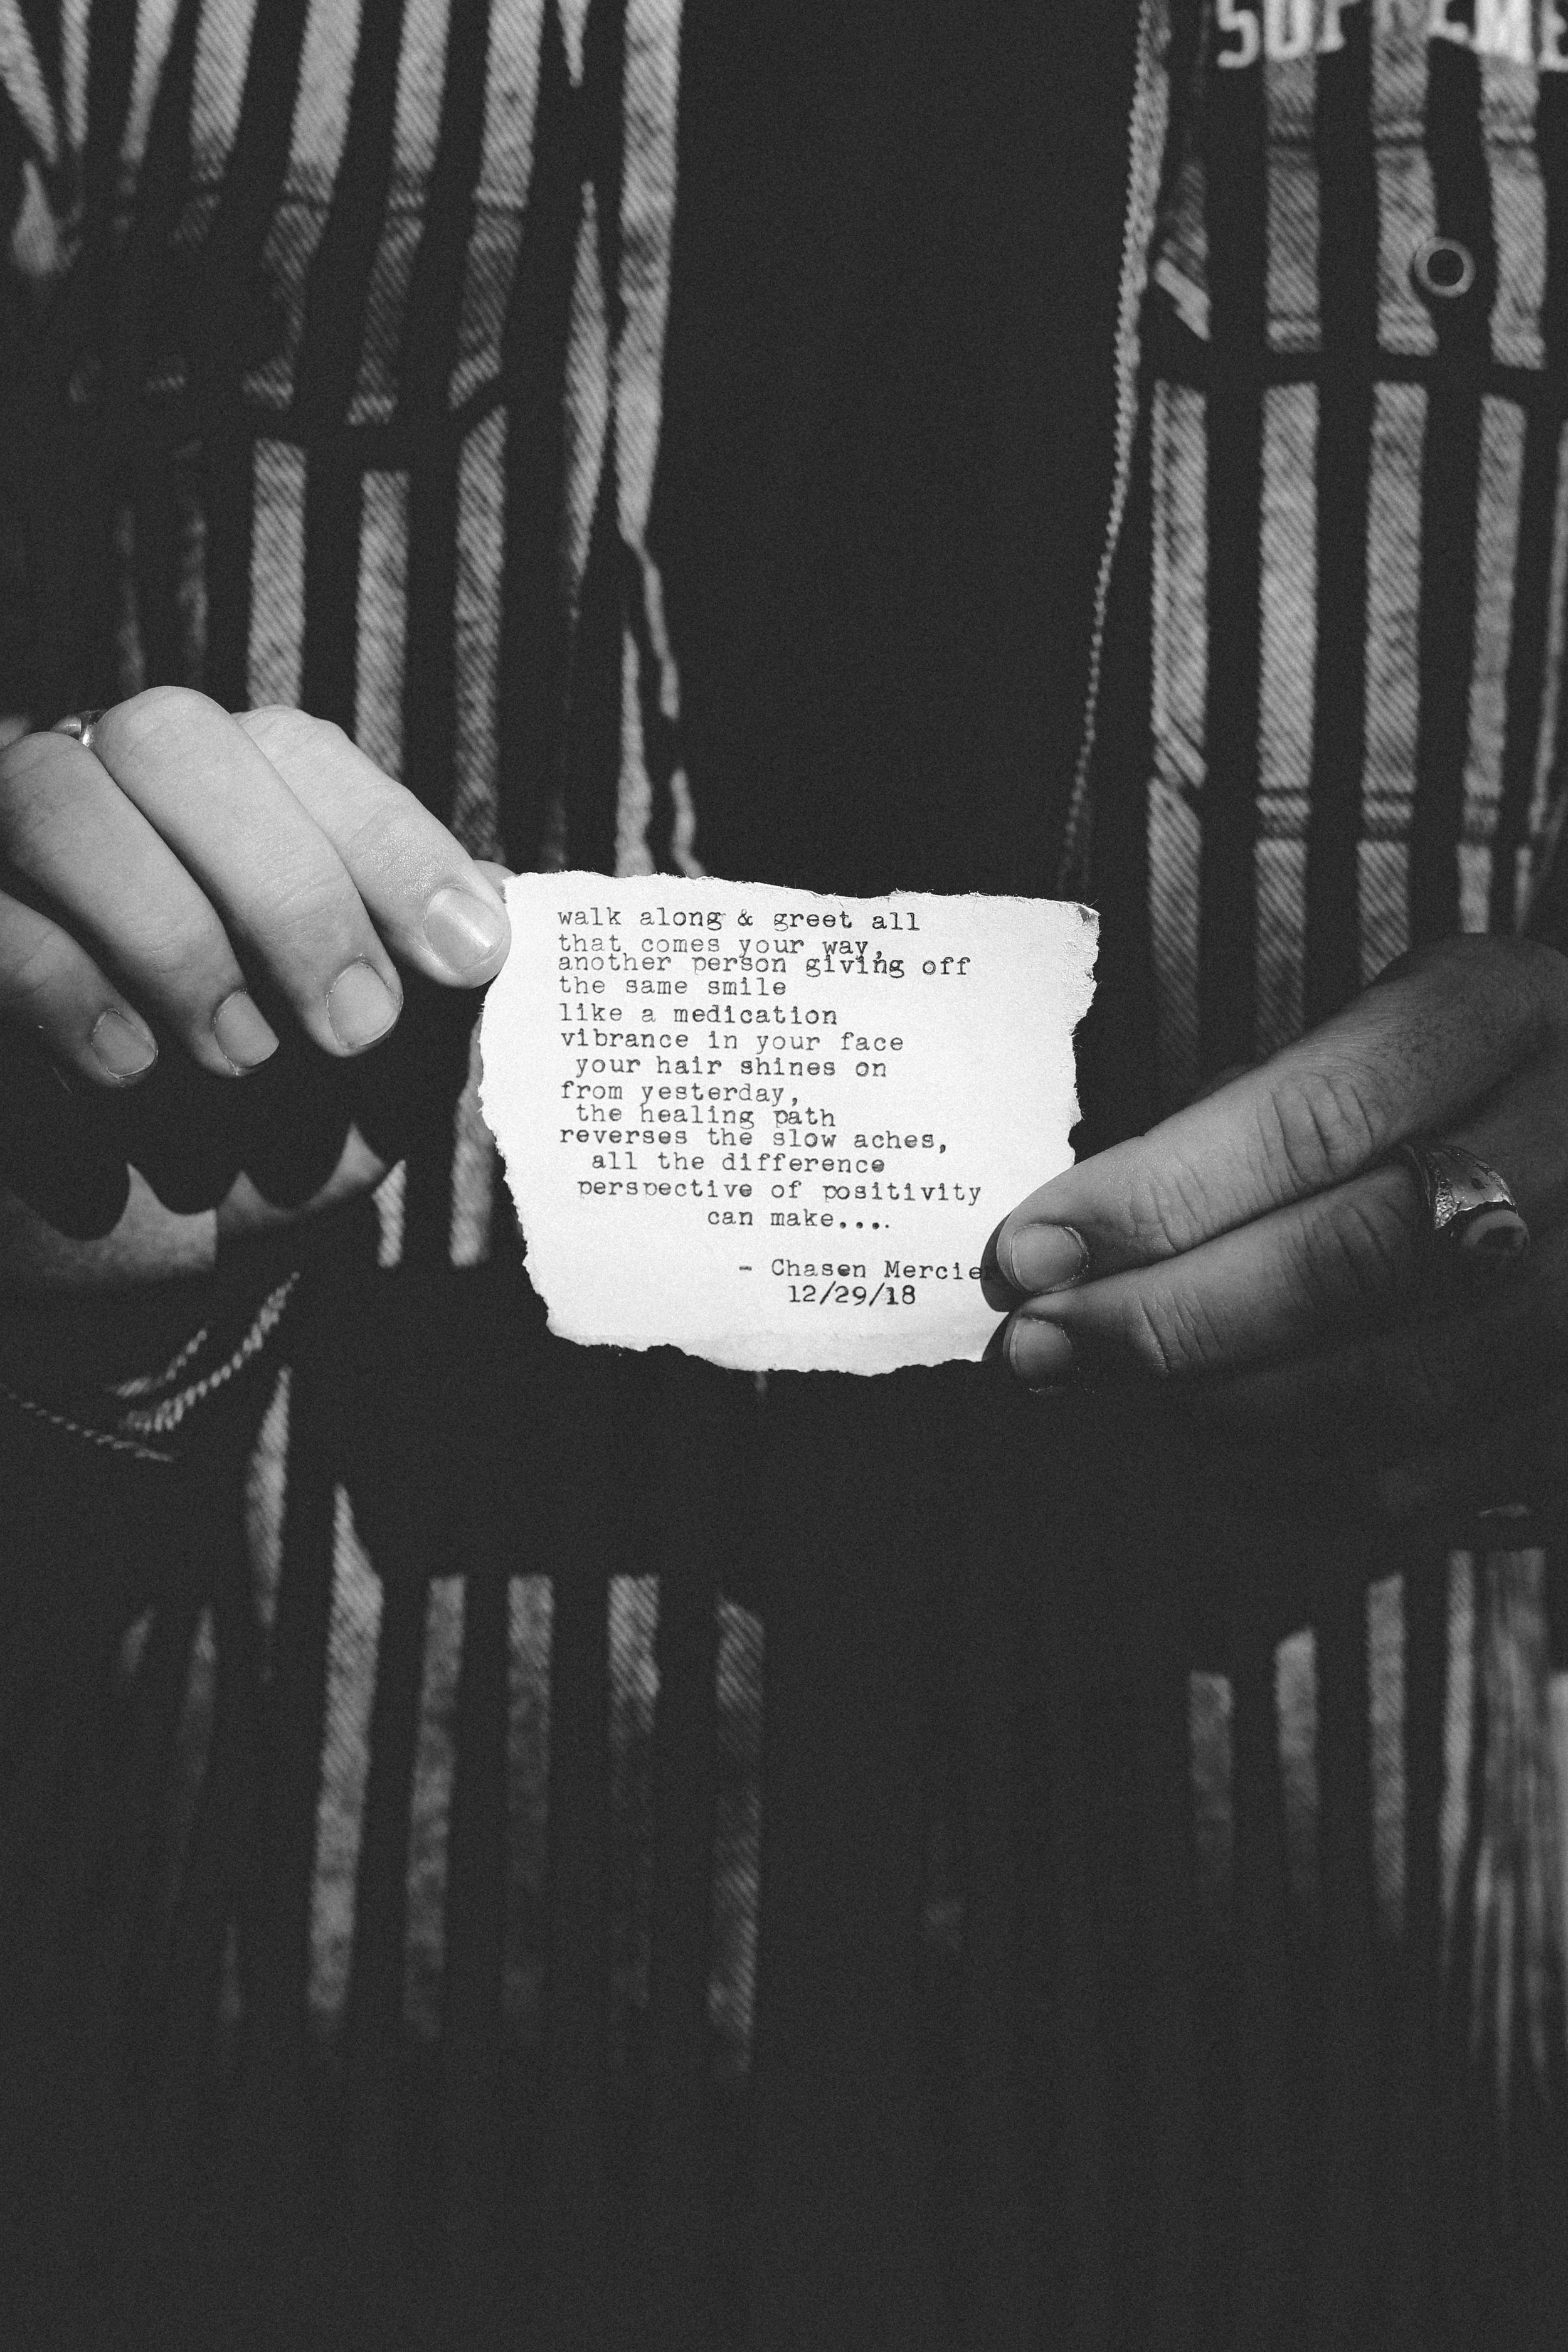 SUPREME
walk along & greet all
that comes your way,
another person giving off
the same smile
like a medication
vibrance in your face
your hair shines on
from yesterday,
the healing path
reverses the slow aches,
all the difference
perspective of positivity
can make....
- Chasen Mercier
12/29/18